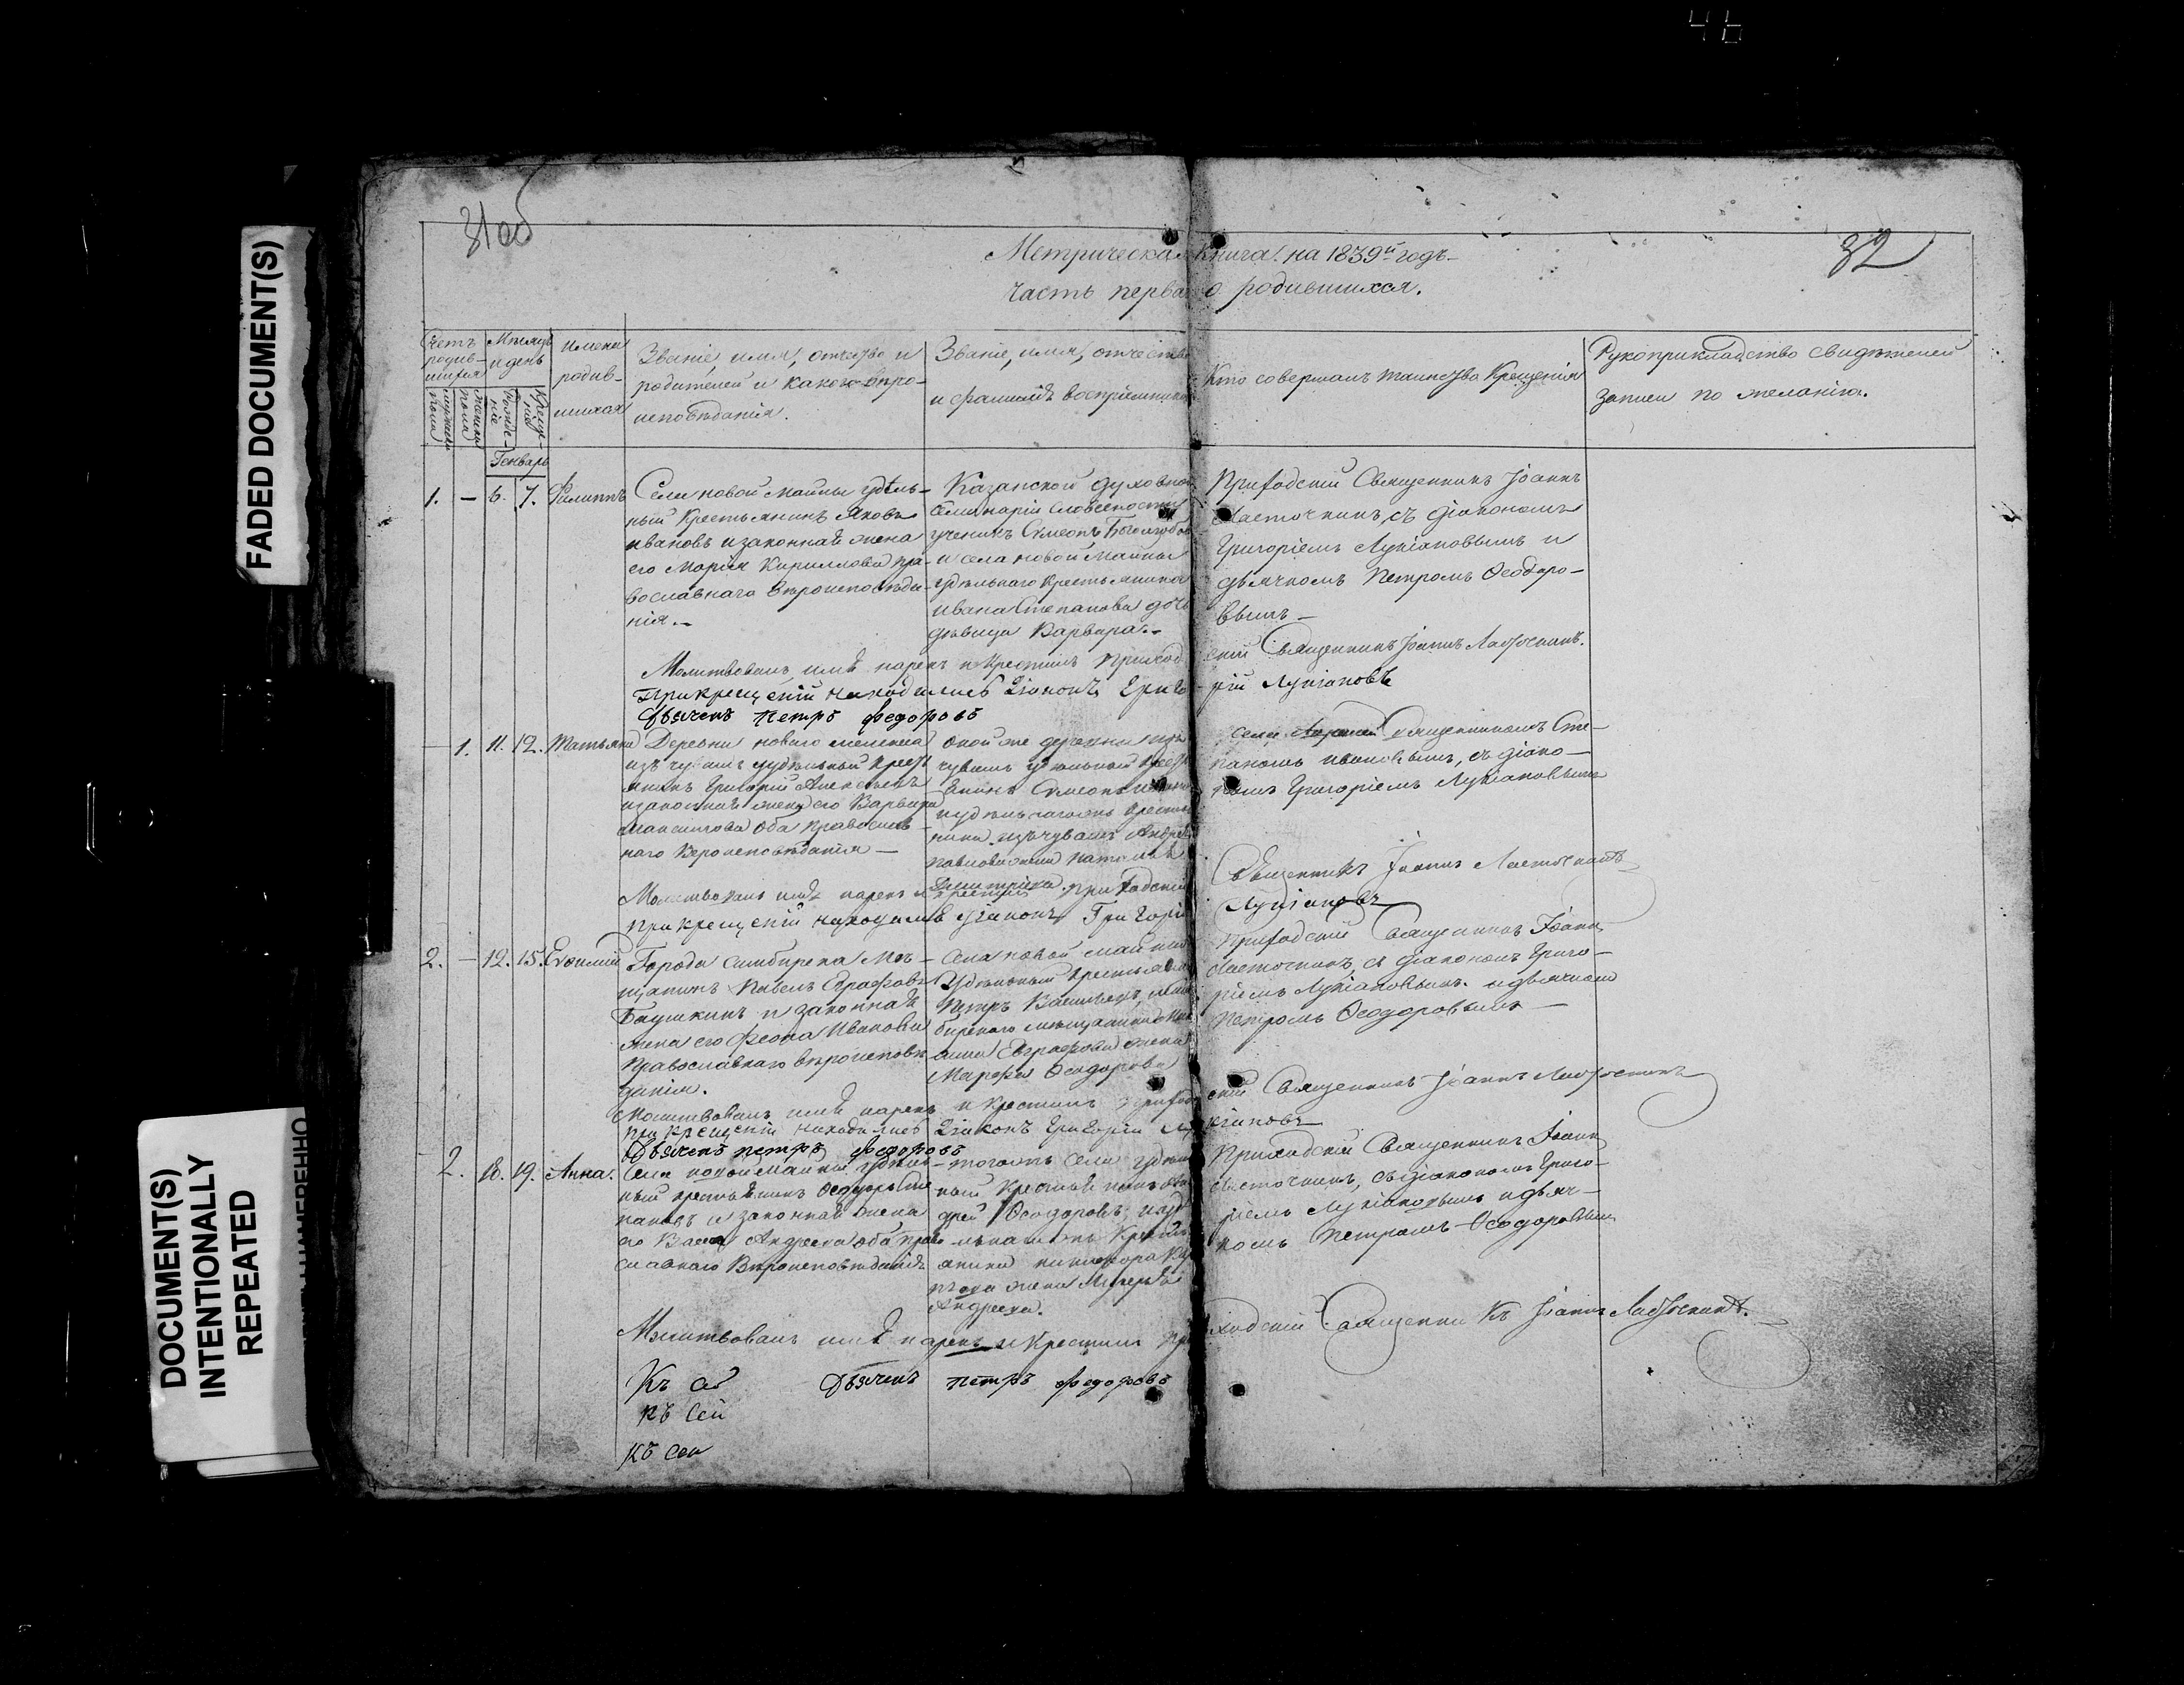 46
FADED DOCUMENT(S)
DOCUMENT(S)
INTENTIONALLY
REPEATED
31 об
32
Метрическая книга на 1839й годъ
часть первая о родившихся.
Счетъ родив-шихся
мужеска пола
женска пола
Мѣсяцъ и день
Рожде-нія
Креще-нія
Имена родив-шихся
Званіе, имя, отчество и
родителей и какого вѣро-
исповѣданія.
Званіе, имя, отчество
и фамилія воспріемника
Кто совершалъ таинство Крещенія
Рукоприкладство свидѣтелей
записи по желанію.
Генварь
1. — 6. 7. Филиппъ
Села новой Майны удѣль-
ный Крестьянинъ Яковъ
Ивановъ и законная жена
его Марія Кириллова пра-
вославнаго вѣроисповѣда-
нія.
Казанской духовной
Семинаріи Словесности
ученикъ Симеонъ Боголюбов
и села новой Майны
удѣльнаго крестьянина
Ивана Степанова дочь
дѣвица Варвара.
Приходскій Священникъ Іоаннъ
Ласточкинъ, съ діакономъ
Григоріемъ Лукіановымъ и
дьячкомъ Петромъ Ѳеодоро-
вымъ
Молитвовалъ, имя нарекъ и крестилъ Приходскій Священникъ Іоаннъ Ласточкинъ.
При крещеніи находились Діаконъ Григорій Лукіановъ
Дьячекъ Петръ Федоровъ
1. 11. 12. Татьяна
Деревни новаго
изъ чувашъ удѣльный крест
янинъ Григорій Алексѣевъ
и законная жена его Варвара
Максимова оба православ-
наго вѣроисповѣданія
оной же деревни изъ
чувашъ удѣльный крест
янинъ Симеонъ
и удѣльнаго крестья
нина изъ чувашъ Андрея
Павлова жена Наталья
Дмитріева
села священникомъ Сте-
паномъ Ивановымъ, съ діако-
номъ Григоріемъ Лукіановымъ
Молитвовалъ имя нарекъ и крестилъ приходскій Священникъ Іоаннъ Ласточкинъ
при крещеніи находился діаконъ Григорій Лукіановъ
2. — 12. 15. Евѳимій
Города Симбирска Мѣ-
щанинъ Павелъ Евграфовъ
и законная
жена его Феона Иванова
Православнаго вѣроисповѣ
данія.
Села новой Майны
Удѣльный крестьянинъ
Петръ Васильевъ,
бирскаго мѣщанина
Евграфова жена
Марфа Ѳеодорова
Приходскій Священникъ Іоаннъ
Ласточкинъ, съ діакономъ Григо-
ріемъ Лукіановымъ и дьячкомъ
Петромъ Ѳеодоровымъ
Молитвовалъ имя нарекъ и крестилъ Приходскій Священникъ Іоаннъ Ласточкинъ
При крещеніи находились Діаконъ Григорій Лукіановъ
Дьячекъ петръ федоровъ
2. 18. 19. Анна.
Села новой Майны удѣль-
ный крестьянинъ Ѳеодоръ Сте
пановъ и законная жена
его Васса Андреева оба право
славнаго Вѣроисповѣданія
тогожъ села удѣль
ный Крестьянинъ Ан
дрей Ѳеодоровъ, и уд
льнагожъ Крестья
янина никифора
жена
Андреева.
Приходскій Священникъ Іоаннъ
Ласточкинъ, съ діакономъ Григо-
ріемъ Лукіановымъ и дьяч-
комъ Петромъ Ѳеодоровымъ
Молитвовалъ имя нарекъ и Крестилъ Приходскій Священникъ Іоаннъ Ласточкинъ.
Дьячекъ петръ федоровъ
Къ сей
къ сей
къ сей